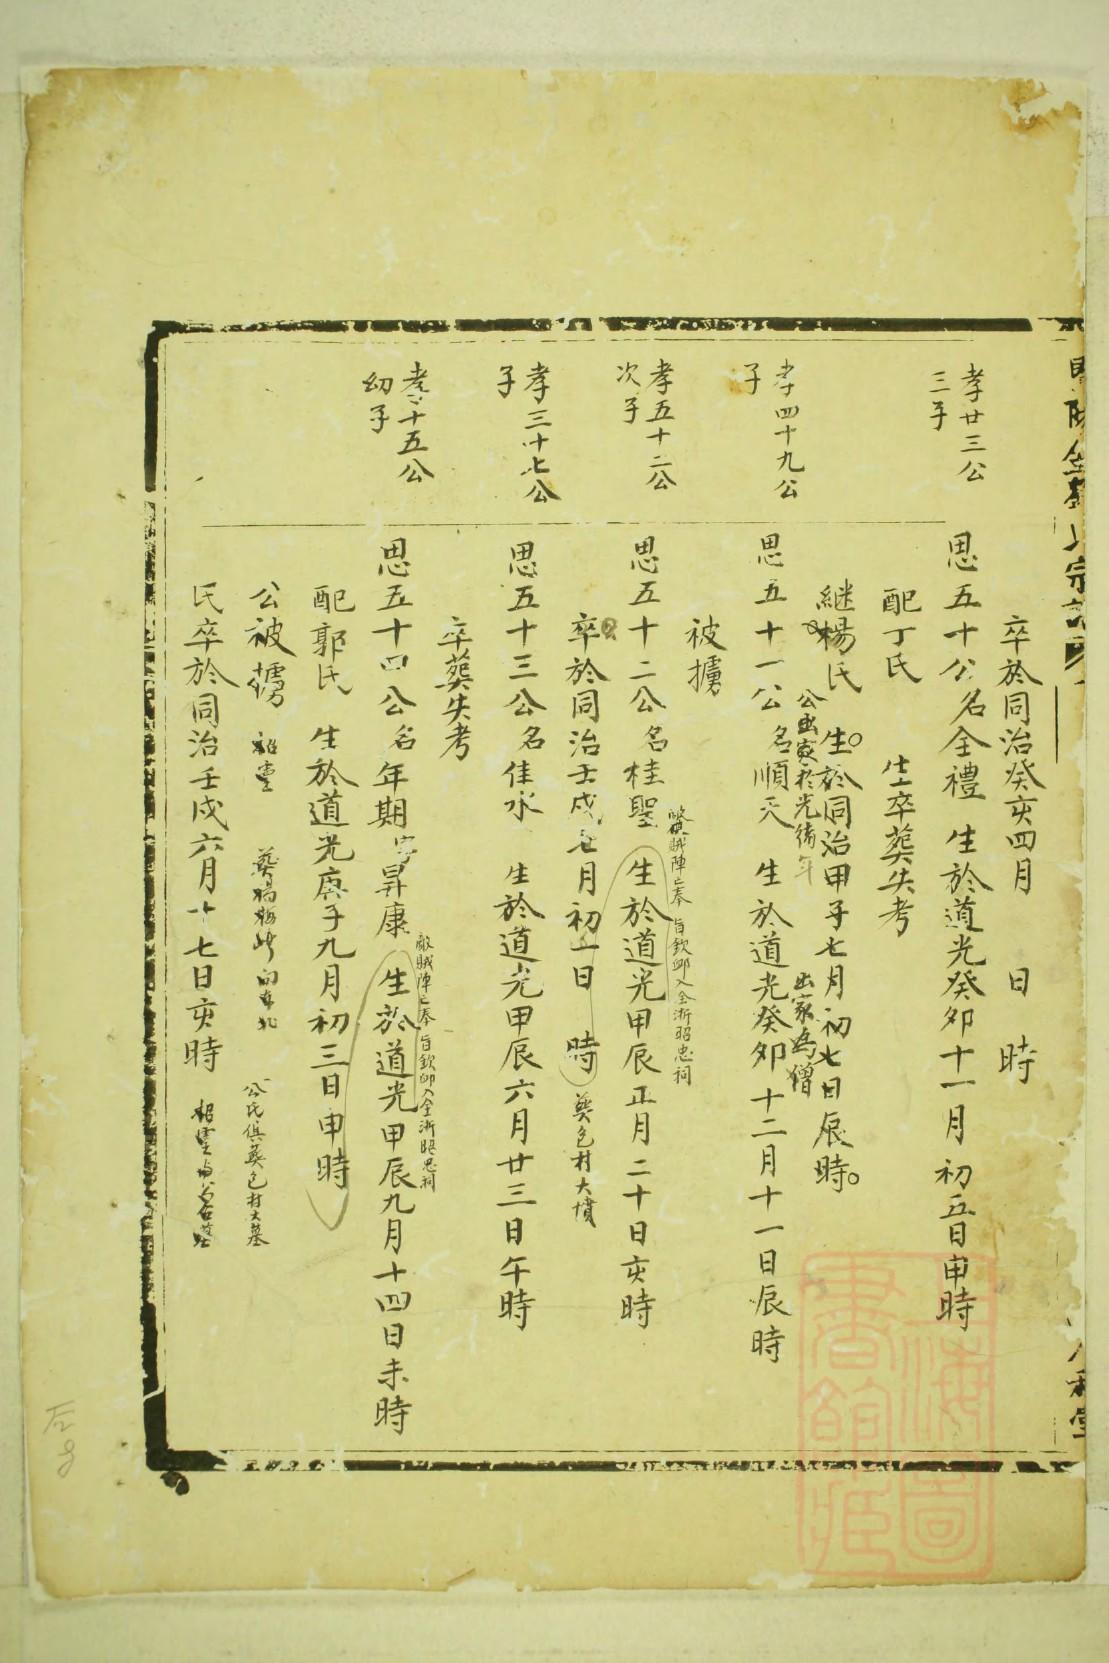 卒於同治癸亥四月 日 時
孝廿三公
三子
思五十公名全禮 生於道光癸卯十一月初五日申時
配丁氏 生卒葬失考
継楊氏 生於同治甲子七月初七日辰時
出家為僧
孝四十九公
子
思五十一公名順天 生於道光癸卯十二月十一日辰時
被擄
孝五十二公
次子
思五十二公名桂聖 生於道光甲辰正月二十日亥時
賊陣亡奉 旨欽卹入全浙昭忠祠
卒於同治壬戌七月初一日 時 葬包村大墳
孝三十七公
子
思五十三公名佳水 生於道光甲辰六月廿三日午時
卒葬失考
十五公
幼子
思五十四公名年期字昇康 生於道光甲辰九月十四日未時
賊陣亡奉 旨欽卹入全浙昭忠祠
配郭氏 生於道光庚子九月初三日申時
公被擄
公氏俱葬包村大墓
氏卒於同治壬戌六月十七日亥時
上海圖
書館藏